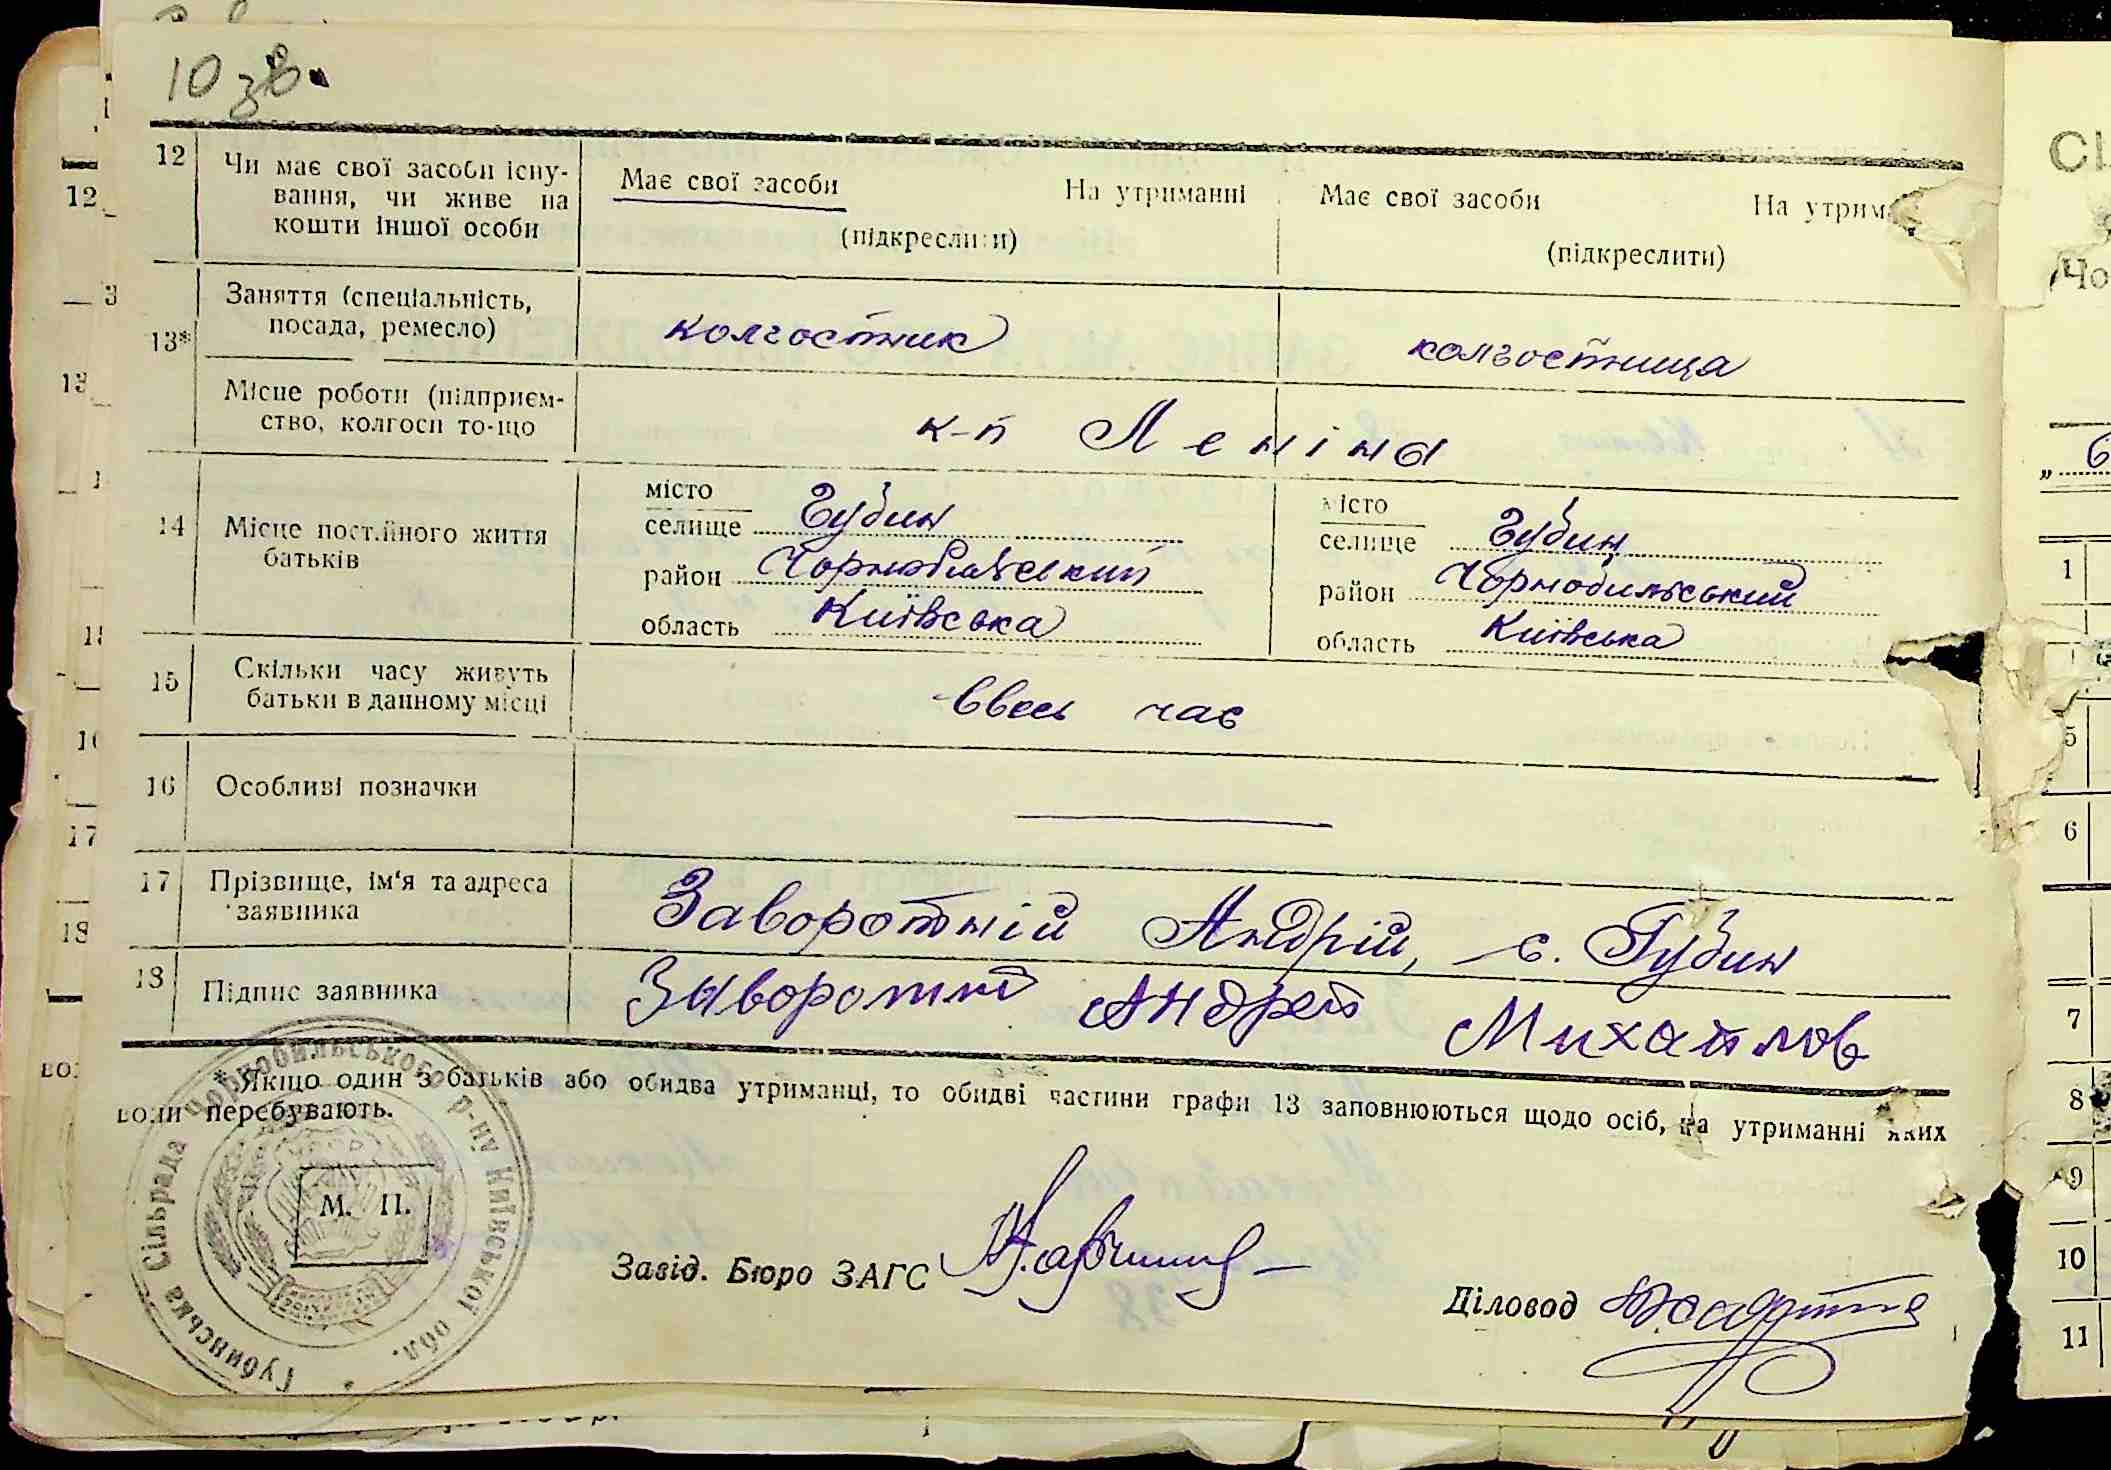 10 зв.
12 Чи має свої засоби існу-
вання, чи живе на
кошти іншої особи
Має свої засоби На утриманні
(підкреслити)
Має свої засоби На утрим
(підкреслити)
13* Заняття (спеціальність,
посада, ремесло)
колгостник колгостница
Місце роботи (підприєм-
ство, колгосп то-що
к-п Леніна
14 Місце постійного життя
батьків
місто
селище Губин
район Чорнобильський
область Київська
місто
селище Губин
район Чорнобильський
область Київська
15 Скільки часу живуть
батьки в данному місці
ввесь час
16 Особливі позначки
17 Прізвище, ім'я та адреса
заявника
Заворотній Андрій, с. Губин
18 Підпис заявника
Андрей Михайлов
* Якщо один з батьків або обидва утриманці, то обидві частини графи 13 заповнюються щодо осіб, на утриманні яких
вони перебувають.
М. П.
Губинська Сільрада Чорнобильського р-ну Київської обл.
Завід. Бюро ЗАГС
Діловод
12
13
17
18
СІ
Чо
1
5
6
7
8
9
10
11